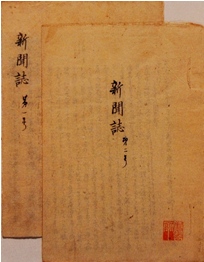 新聞誌
第一号
新聞誌
第二号